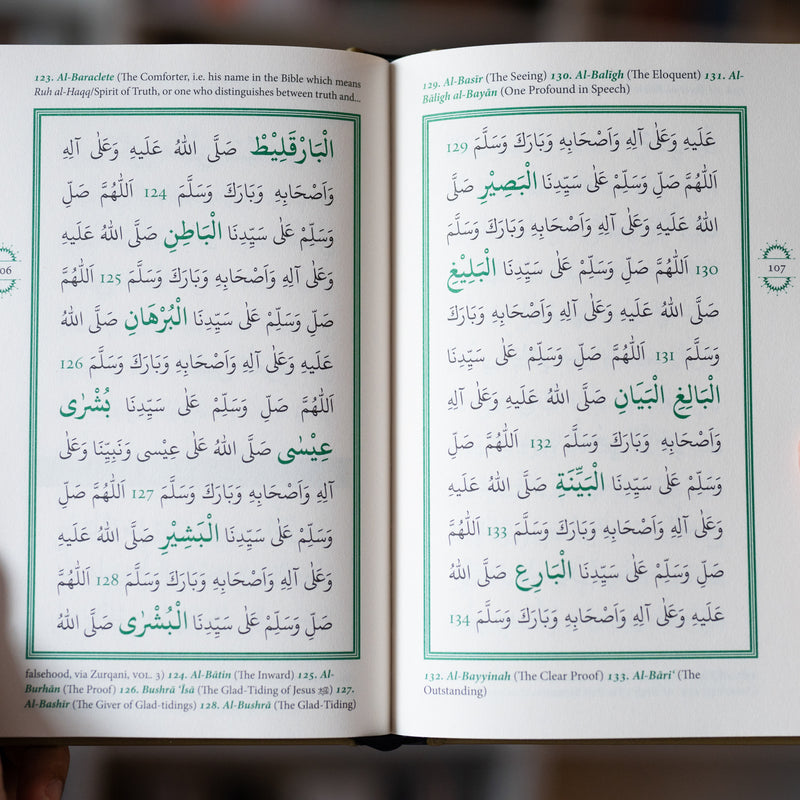 123. Al-Baraclete (The Comforter, i.e. his name in the Bible which means
Ruh al-Haqq/Spirit of Truth, or one who distinguishes between truth and...
الْبَارْقَلِيْطْ صَلَّى اللهُ عَلَيهِ وَعَلٰى آلِهِ
وَاَصْحَابِهِ وَبَارَكَ وَسَلَّمَ 124 اَللّٰهُمَّ صَلِّ
وَسَلِّمْ عَلٰى سَيِّدِنَا الْبَاطِنِ صَلَّى اللهُ عَلَيهِ
وَعَلٰى آلِهِ وَاَصْحَابِهِ وَبَارَكَ وَسَلَّمَ 125 اَللّٰهُمَّ
صَلِّ وَسَلِّمْ عَلٰى سَيِّدِنَا الْبُرْهَانِ صَلَّى اللهُ
عَلَيهِ وَعَلٰى آلِهِ وَاَصْحَابِهِ وَبَارَكَ وَسَلَّمَ 126
اَللّٰهُمَّ صَلِّ وَسَلِّمْ عَلٰى سَيِّدِنَا بُشْرٰى
عِيْسٰى صَلَّى اللهُ عَلٰى عِيْسى وَنَبِيِّنَا وَعَلٰى
آلِهِ وَاَصْحَابِهِ وَبَارَكَ وَسَلَّمَ 127 اَللّٰهُمَّ صَلِّ
وَسَلِّمْ عَلٰى سَيِّدِنَا الْبَشِيْرِ صَلَّى اللهُ عَلَيهِ
وَعَلٰى آلِهِ وَاَصْحَابِهِ وَبَارَكَ وَسَلَّمَ 128 اَللّٰهُمَّ
صَلِّ وَسَلِّمْ عَلٰى سَيِّدِنَا الْبُشْرٰى صَلَّى اللهُ
falsehood, via Zurqani, VOL. 3) 124. Al-Bātin (The Inward) 125. Al-
Burhān (The Proof) 126. Bushrā ‘Īsā (The Glad-Tiding of Jesus) 127.
Al-Bashīr (The Giver of Glad-tidings) 128. Al-Bushrā (The Glad-Tiding)
06
129. Al-Basīr (The Seeing) 130. Al-Balīgh (The Eloquent) 131. Al-
Bāligh al-Bayān (One Profound in Speech)
عَلَيهِ وَعَلٰى آلِهِ وَاَصْحَابِهِ وَبَارَكَ وَسَلَّمَ 129
اَللّٰهُمَّ صَلِّ وَسَلِّمْ عَلٰى سَيِّدِنَا الْبَصِيْرِ صَلَّى
اللهُ عَلَيهِ وَعَلٰى آلِهِ وَاَصْحَابِهِ وَبَارَكَ وَسَلَّمَ
130 اَللّٰهُمَّ صَلِّ وَسَلِّمْ عَلٰى سَيِّدِنَا الْبَلِيْغِ
صَلَّى اللهُ عَلَيهِ وَعَلٰى آلِهِ وَاَصْحَابِهِ وَبَارَكَ
وَسَلَّمَ 131 اَللّٰهُمَّ صَلِّ وَسَلِّمْ عَلٰى سَيِّدِنَا
الْبَالِغِ الْبَيَانِ صَلَّى اللهُ عَلَيهِ وَعَلٰى آلِهِ
وَاَصْحَابِهِ وَبَارَكَ وَسَلَّمَ 132 اَللّٰهُمَّ صَلِّ
وَسَلِّمْ عَلٰى سَيِّدِنَا الْبَيِّنَةِ صَلَّى اللهُ عَلَيهِ
وَعَلٰى آلِهِ وَاَصْحَابِهِ وَبَارَكَ وَسَلَّمَ 133 اَللّٰهُمَّ
صَلِّ وَسَلِّمْ عَلٰى سَيِّدِنَا الْبَارِعِ صَلَّى اللهُ
عَلَيهِ وَعَلٰى آلِهِ وَاَصْحَابِهِ وَبَارَكَ وَسَلَّمَ 134
132. Al-Bayyinah (The Clear Proof) 133. Al-Bāri‘ (The
Outstanding)
107